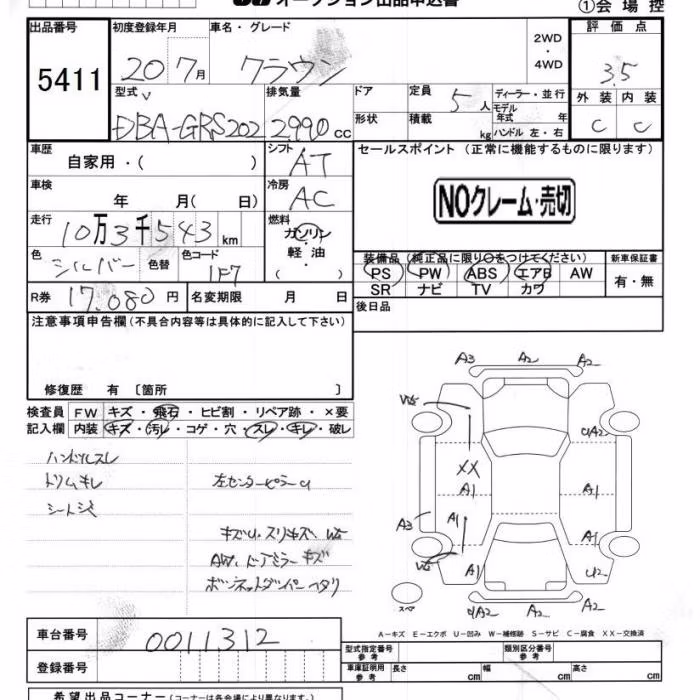 オークション出品申込書
①会場控
出品番号 初度登録年月 車名・グレード 2WD ・ 4WD 評価点
5411 20 7月 クラウン 3.5
型式 排気量 ドア 定員 5人 ディーラー・並行 外装 内装
DBA-GRS202 2990cc 形状 積載 kg モデル年式 年 ハンドル 左・右 C C
車歴 自家用・( ) シフト AT セールスポイント (正常に機能するものに限ります)
車検 年 月( 日) 冷房 AC NOクレーム・売切
走行 10万3千543km 燃料 ガソリン 軽油 ・( )
色 シルバー 色替 色コード 1F7
装備品 (純正品に限り○をつけてください) 新車保証書
PS PW ABS エアB AW 有・無
SR ナビ TV カワ
R券 17,080円 名変期限 月 日 後日品
注意事項申告欄(不具合内容等は具体的に記入して下さい)
修復歴 有 〔箇所 〕
検査員 FW キズ・飛石・ヒビ割・リペア跡・×要
記入欄 内装 キズ・汚レ・コゲ・穴・スレ・キレ・破レ
ハンドルスレ
トリムキレ 左センターピラーU
シートシミ
キズU・スリキズ、W5
AW、ドアミラーキズ
ボンネットダンパーヘタリ
A3 A2 A2
XX
A1 A1
A3 A1 A1
A1 U2
スペア A2 A2
A-キズ E-エクボ U-凹み W-補修跡 S-サビ C-腐食 XX-交換済
車台番号 0011312
登録番号
型式指定番号 参考 類別区分番号 参考
車庫証明用 参考 長さ cm 幅 cm 高さ cm
希望出品コーナー(コーナーは各会場により異なります。)